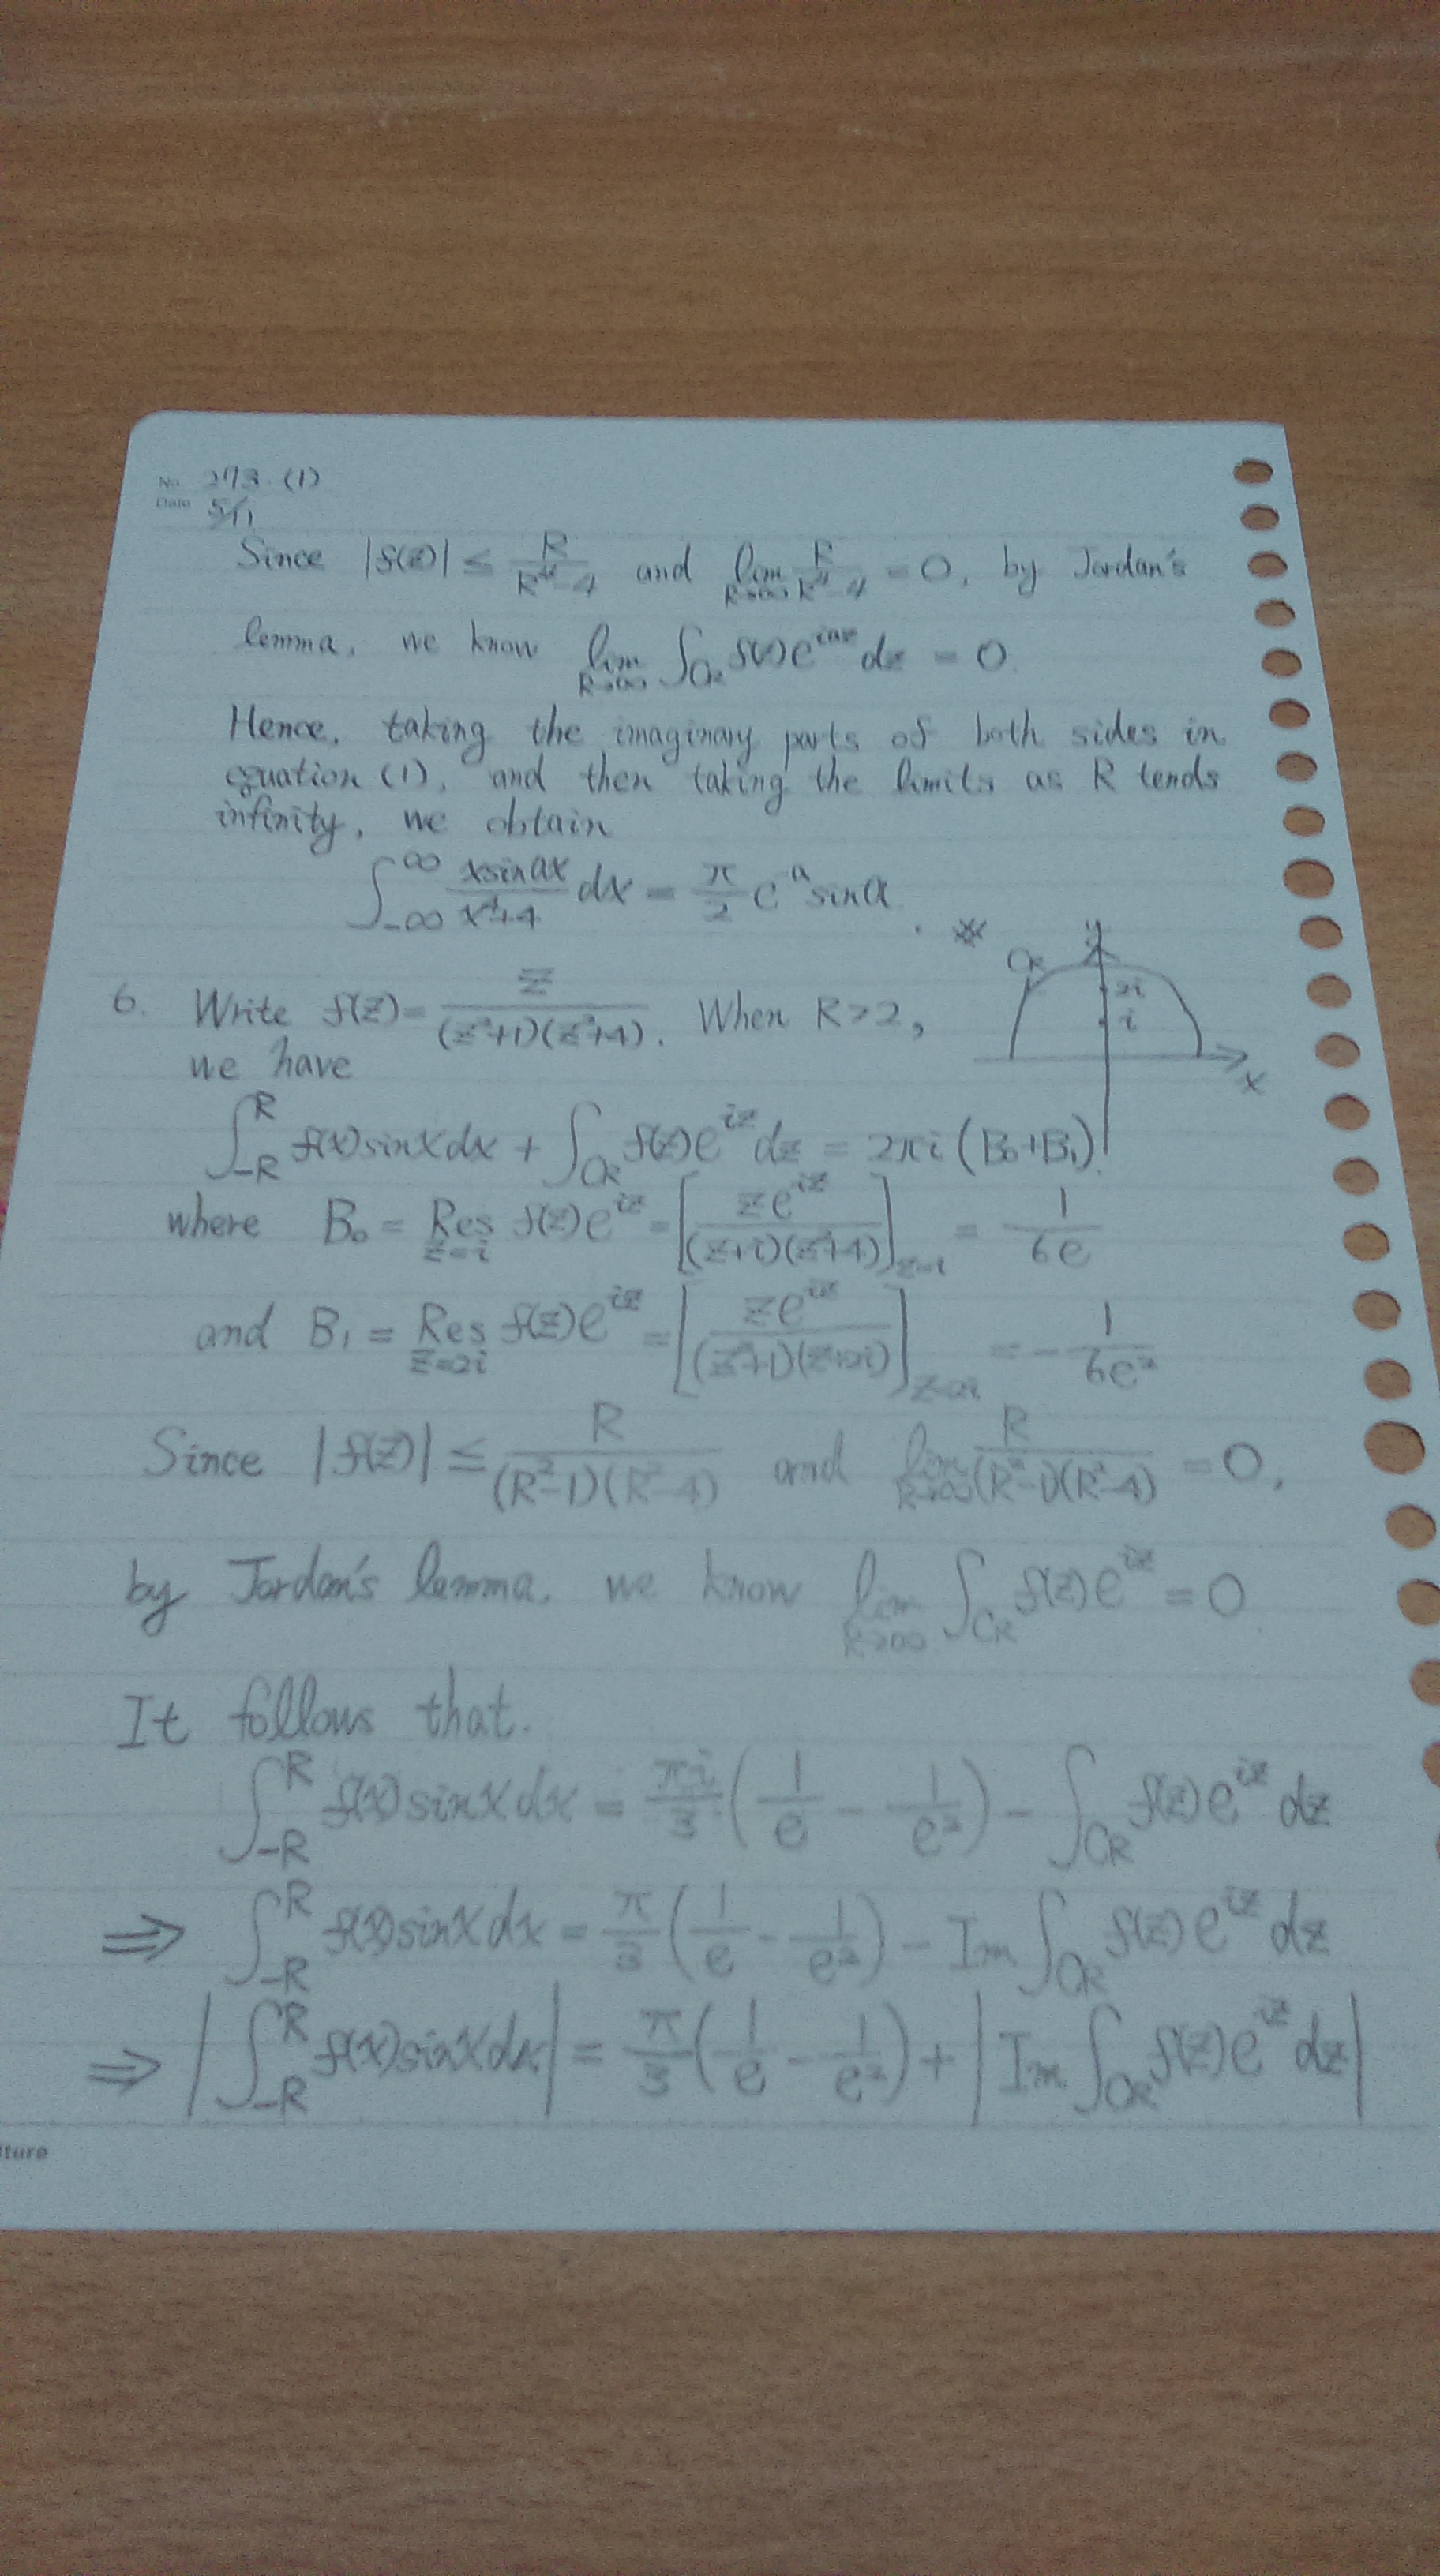 No. 273. (1)
Date 5/11
Since |f(z)| ≤ R/(R⁴-4) and lim_{R→∞} R/(R⁴-4) = 0, by Jordan's
lemma, we know lim_{R→∞} ∫_{C_R} f(z)e^{iaz} dz = 0.
Hence, taking the imaginary parts of both sides in
equation (1), and then taking the limits as R tends
infinity, we obtain
∫_{-∞}^{∞} (x sin ax)/(x⁴+4) dx = π/2 e^{-a} sin a. ※
y
C_R
2i
i
x
6. Write f(z) = z/((z²+1)(z²+4)). When R>2,
we have
∫_{-R}^{R} f(x) sin x dx + ∫_{C_R} f(z)e^{iz} dz = 2πi (B₀+B₁)
where B₀ = Res_{z=i} f(z)e^{iz} = [ze^{iz}/((z+i)(z²+4))]_{z=i} = 1/(6e)
and B₁ = Res_{z=2i} f(z)e^{iz} = [ze^{iz}/((z²+1)(z+2i))]_{z=2i} = -1/(6e²)
Since |f(z)| ≤ R/((R²-1)(R²-4)) and lim_{R→∞} R/((R²-1)(R²-4)) = 0,
by Jordan's lemma, we know lim_{R→∞} ∫_{C_R} f(z)e^{iz} = 0.
It follows that.
∫_{-R}^{R} f(x) sin x dx = πi/3 (1/e - 1/e²) - ∫_{C_R} f(z)e^{iz} dz
⇒ ∫_{-R}^{R} f(x) sin x dx = π/3 (1/e - 1/e²) - Im ∫_{C_R} f(z)e^{iz} dz
⇒ |∫_{-R}^{R} f(x) sin x dx| = π/3 (1/e - 1/e²) + |Im ∫_{C_R} f(z)e^{iz} dz|